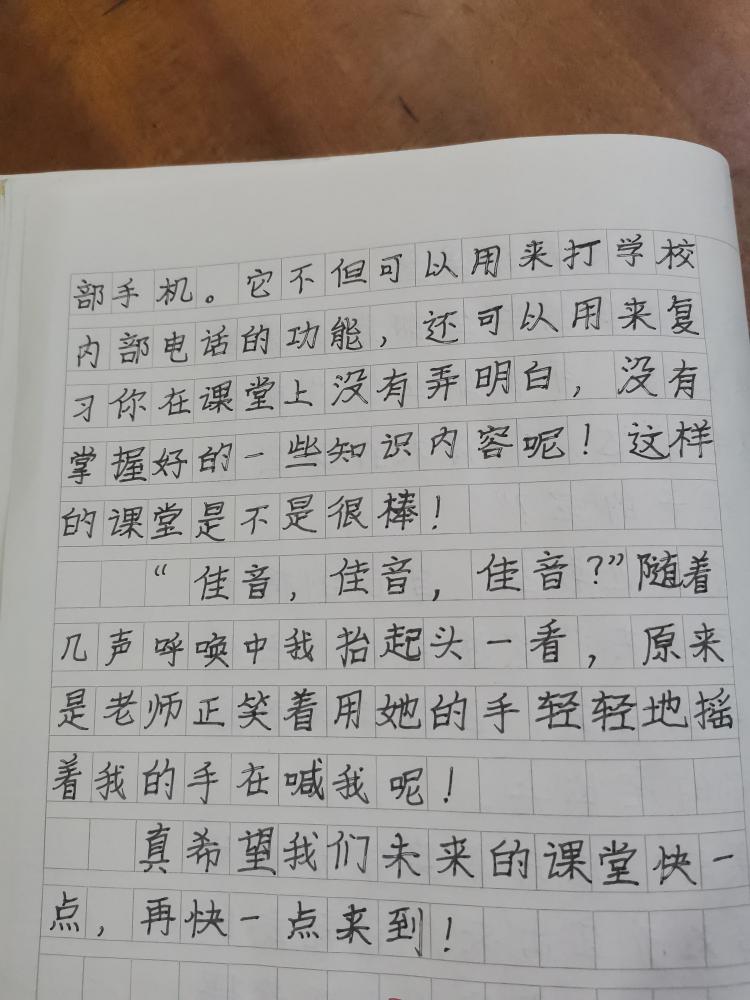 部手机。它不但可以用来打学校
内部电话的功能，还可以用来复
习你在课堂上没有弄明白，没有
掌握好的一些知识内容呢！这样
的课堂是不是很棒！
“佳音，佳音，佳音？”随着
几声呼唤中我抬起头一看，原来
是老师正笑着用她的手轻轻地摇
着我的手在喊我呢！
真希望我们未来的课堂快一
点，再快一点来到！